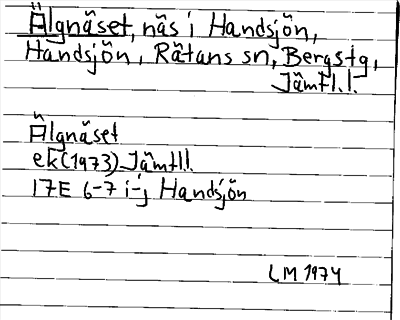 Älgnäset, näs i Handsjön,
Handsjön, Rätans sn, Bergs tg,
Jämtl.l.
Älgnäset
ek(1973) Jämtll.
17E 6-7 i-j Handsjön
LM 1974